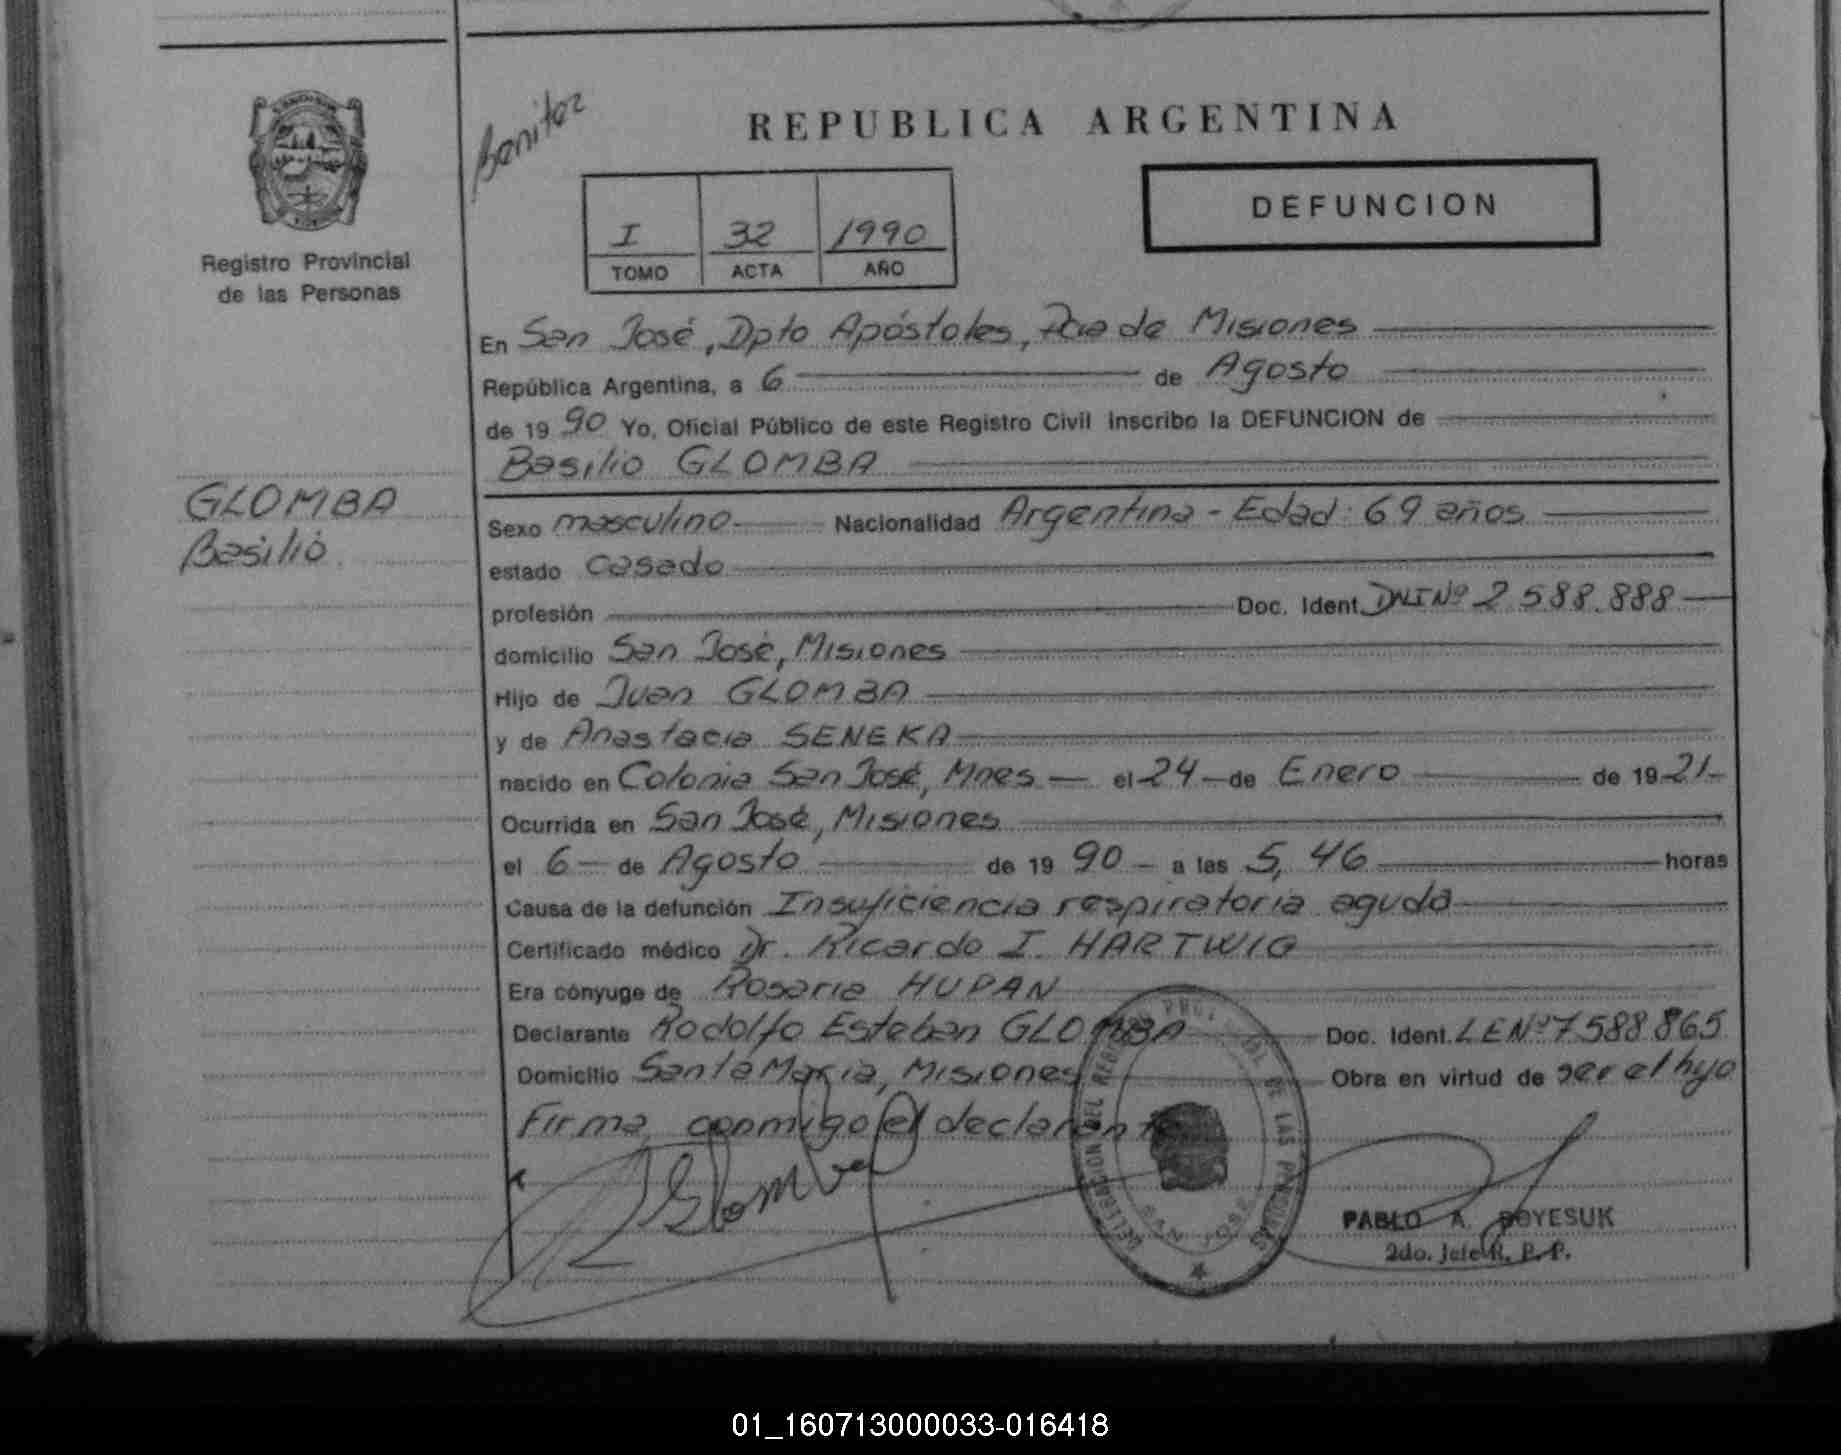 Benitez
REPUBLICA ARGENTINA
DEFUNCION
I 32 1990
TOMO ACTA AÑO
Registro Provincial
de las Personas
En San José, Dpto Apóstoles, Pcia de Misiones
República Argentina, a 6 de Agosto
de 19 90 Yo, Oficial Público de este Registro Civil inscribo la DEFUNCION de
Basilio GLOMBA
GLOMBA
Basilio
Sexo masculino Nacionalidad Argentina - Edad: 69 años
estado casado
profesión Doc. Ident. DNI Nº 2 588.888
domicilio San José, Misiones
Hijo de Juan GLOMBA
y de Anastacia SENEKA
nacido en Colonia San José, Mnes el 24 de Enero de 19 21
Ocurrida en San José, Misiones
el 6 de Agosto de 19 90 a las 5, 46 horas
Causa de la defunción Insuficiencia respiratoria aguda
Certificado médico Dr. Ricardo I. HARTWIG
Era cónyuge de Rosaria HUPAN
Declarante Rodolfo Esteban GLOMBA Doc. Ident. LE Nº 7588865
Domicilio Santa María, Misiones Obra en virtud de ser el hijo
Firma conmigo el declarante
Glomba
DELEGACION DEL REGISTRO PROVINCIAL DE LAS PERSONAS
SAN JOSE
PABLO A. BOYESUK
2do. Jefe R. P. P.
01_160713000033-016418